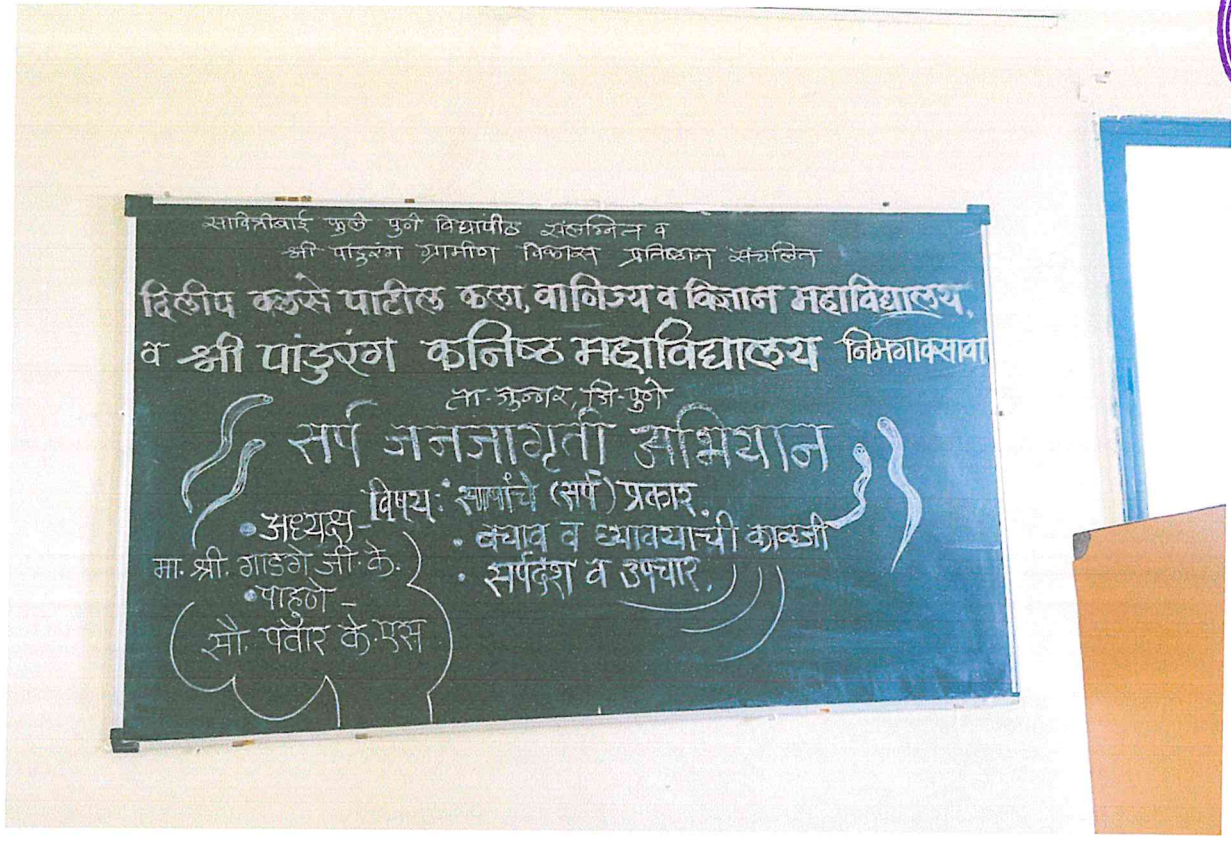 सावित्रीबाई फुले पुणे विद्यापीठ संलग्नित व
श्री पांडुरंग ग्रामीण विकास प्रतिष्ठान संचलित
दिलीप वळसे पाटील कला, वाणिज्य व विज्ञान महाविद्यालय,
व श्री पांडुरंग कनिष्ठ महाविद्यालय निमगावसावा
ता-जुन्नर, जि-पुणे
सर्प जनजागृती अभियान
विषय: सापांचे (सर्प) प्रकार.
• बचाव व घ्यावयाची काळजी
• सर्पदंश व उपचार.
• अध्यक्ष -
मा. श्री. गाडगे जी. के.
• पाहुणे -
सौ. पवार के. एस